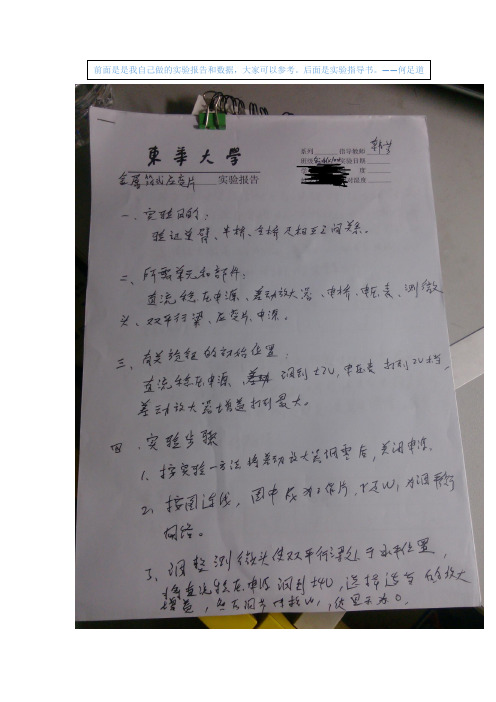 前面是是我自己做的实验报告和数据,大家可以参考。后面是实验指导书。——何足道
東華大學
系列 指导教师
班级 实验日期
金属箔式应变片 实验报告
度
一、实验目的:
验证单臂、半桥、全桥及相互之间关系。
二、所需单元和部件:
直流稳压电源、差动放大器、电桥、电压表、测微
头、双平行梁、应变片、电源。
三、有关旋钮的初始位置:
直流稳压电源 调到±2V,电压表打到2V档,
差动放大器增益打到最大。
四、实验步骤
1、按实验一方法将差动放大器调零后,关闭电源。
2、按图连线,图中 为工作片,r及W1为调平衡
网络。
3、调整测微头使双平行梁处于水平位置,
将直流稳压电源调到±4V,选择适当的放大
增益,然后调节 W1,使显示为0。